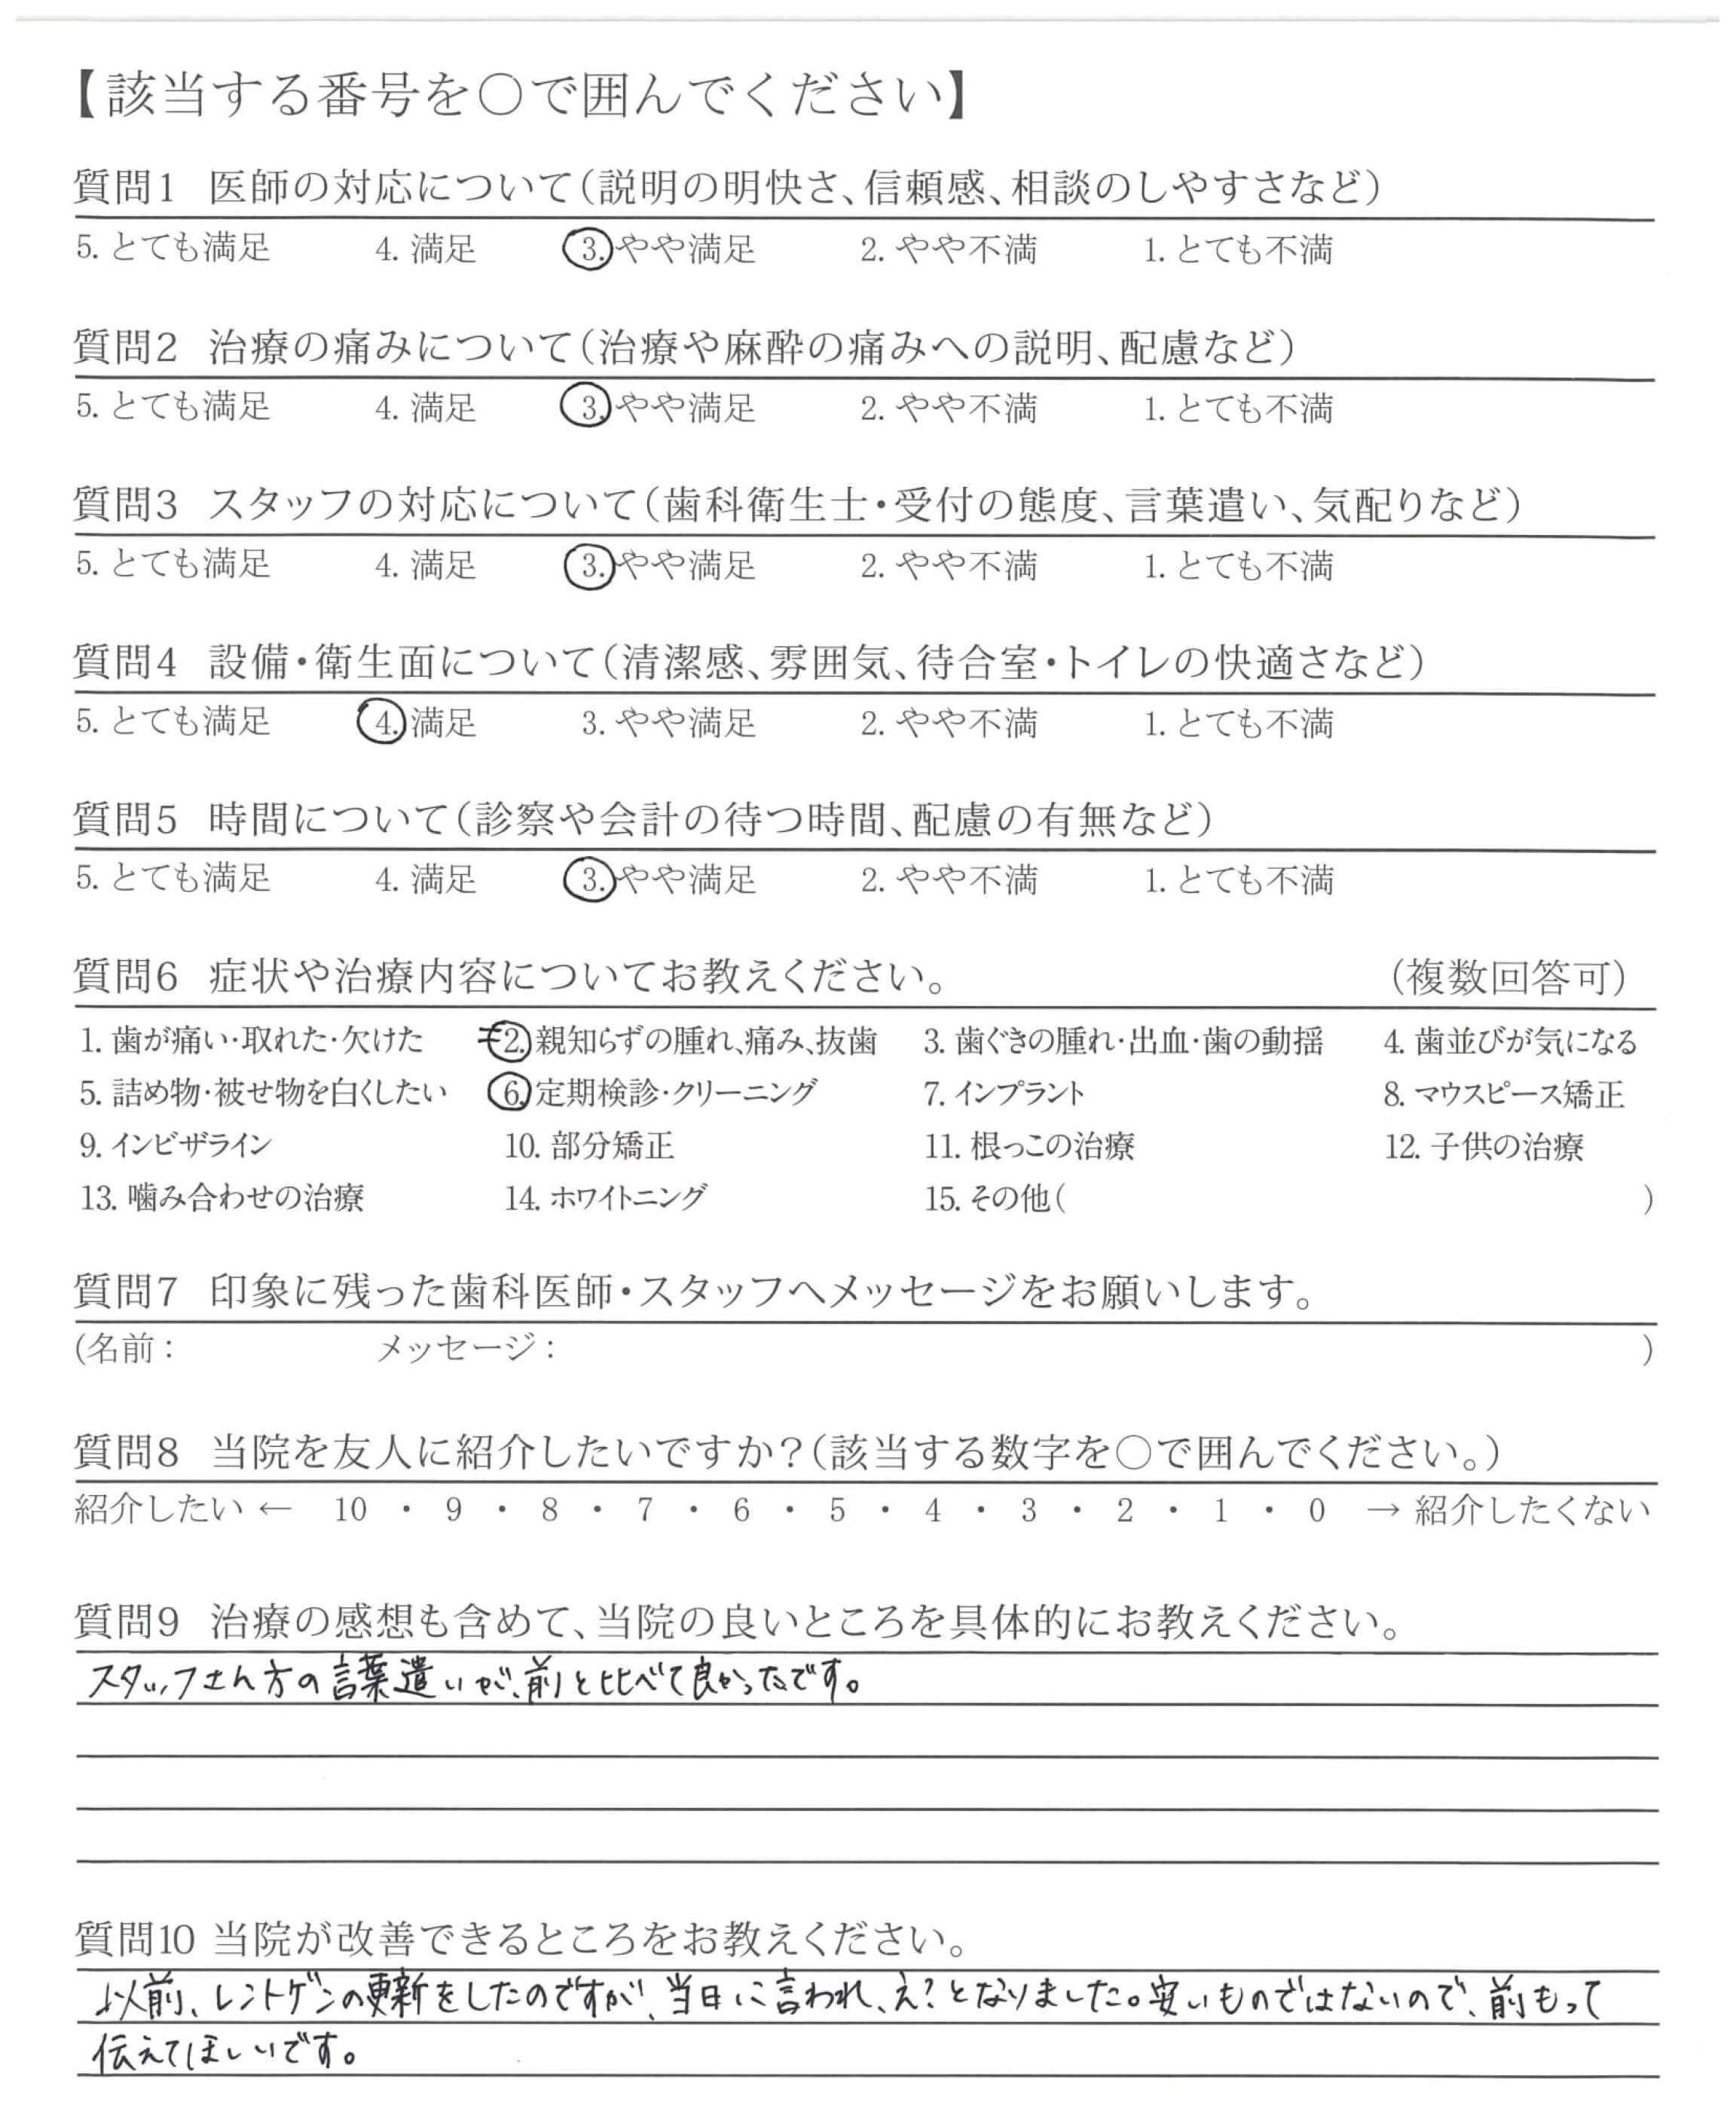 【該当する番号を○で囲んでください】
質問1 医師の対応について(説明の明快さ、信頼感、相談のしやすさなど)
5. とても満足 4. 満足 3. やや満足 2. やや不満 1. とても不満
質問2 治療の痛みについて(治療や麻酔の痛みへの説明、配慮など)
5. とても満足 4. 満足 3. やや満足 2. やや不満 1. とても不満
質問3 スタッフの対応について(歯科衛生士・受付の態度、言葉遣い、気配りなど)
5. とても満足 4. 満足 3. やや満足 2. やや不満 1. とても不満
質問4 設備・衛生面について(清潔感、雰囲気、待合室・トイレの快適さなど)
5. とても満足 4. 満足 3. やや満足 2. やや不満 1. とても不満
質問5 時間について(診察や会計の待つ時間、配慮の有無など)
5. とても満足 4. 満足 3. やや満足 2. やや不満 1. とても不満
質問6 症状や治療内容についてお教えください。 (複数回答可)
1. 歯が痛い・取れた・欠けた 2. 親知らずの腫れ、痛み、抜歯 3. 歯ぐきの腫れ・出血・歯の動揺 4. 歯並びが気になる
5. 詰め物・被せ物を白くしたい 6. 定期検診・クリーニング 7. インプラント 8. マウスピース矯正
9. インビザライン 10. 部分矯正 11. 根っこの治療 12. 子供の治療
13. 噛み合わせの治療 14. ホワイトニング 15. その他( )
質問7 印象に残った歯科医師・スタッフへメッセージをお願いします。
(名前: メッセージ: )
質問8 当院を友人に紹介したいですか?(該当する数字を○で囲んでください。)
紹介したい ← 10 ・ 9 ・ 8 ・ 7 ・ 6 ・ 5 ・ 4 ・ 3 ・ 2 ・ 1 ・ 0 → 紹介したくない
質問9 治療の感想も含めて、当院の良いところを具体的にお教えください。
スタッフさん方の言葉遣いが、前と比べて良かったです。
質問10 当院が改善できるところをお教えください。
以前、レントゲンの更新をしたのですが、当日に言われ、え?となりました。安いものではないので、前もって
伝えてほしいです。